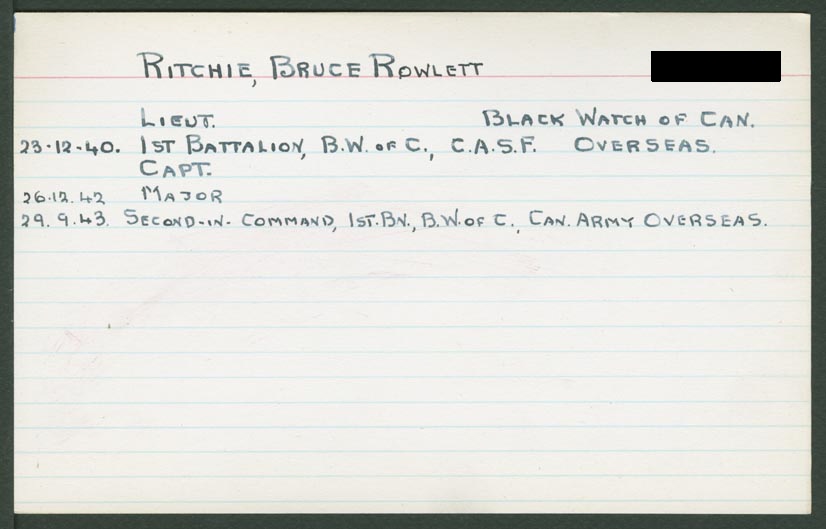 RITCHIE, BRUCE ROWLETT
LIEUT. BLACK WATCH OF CAN.
23-12-40. 1ST BATTALION, B.W. OF C., C.A.S.F. OVERSEAS.
CAPT.
26.12.42 MAJOR
29.9.43. SECOND-IN-COMMAND, 1ST.BN., B.W. OF C., CAN. ARMY OVERSEAS.